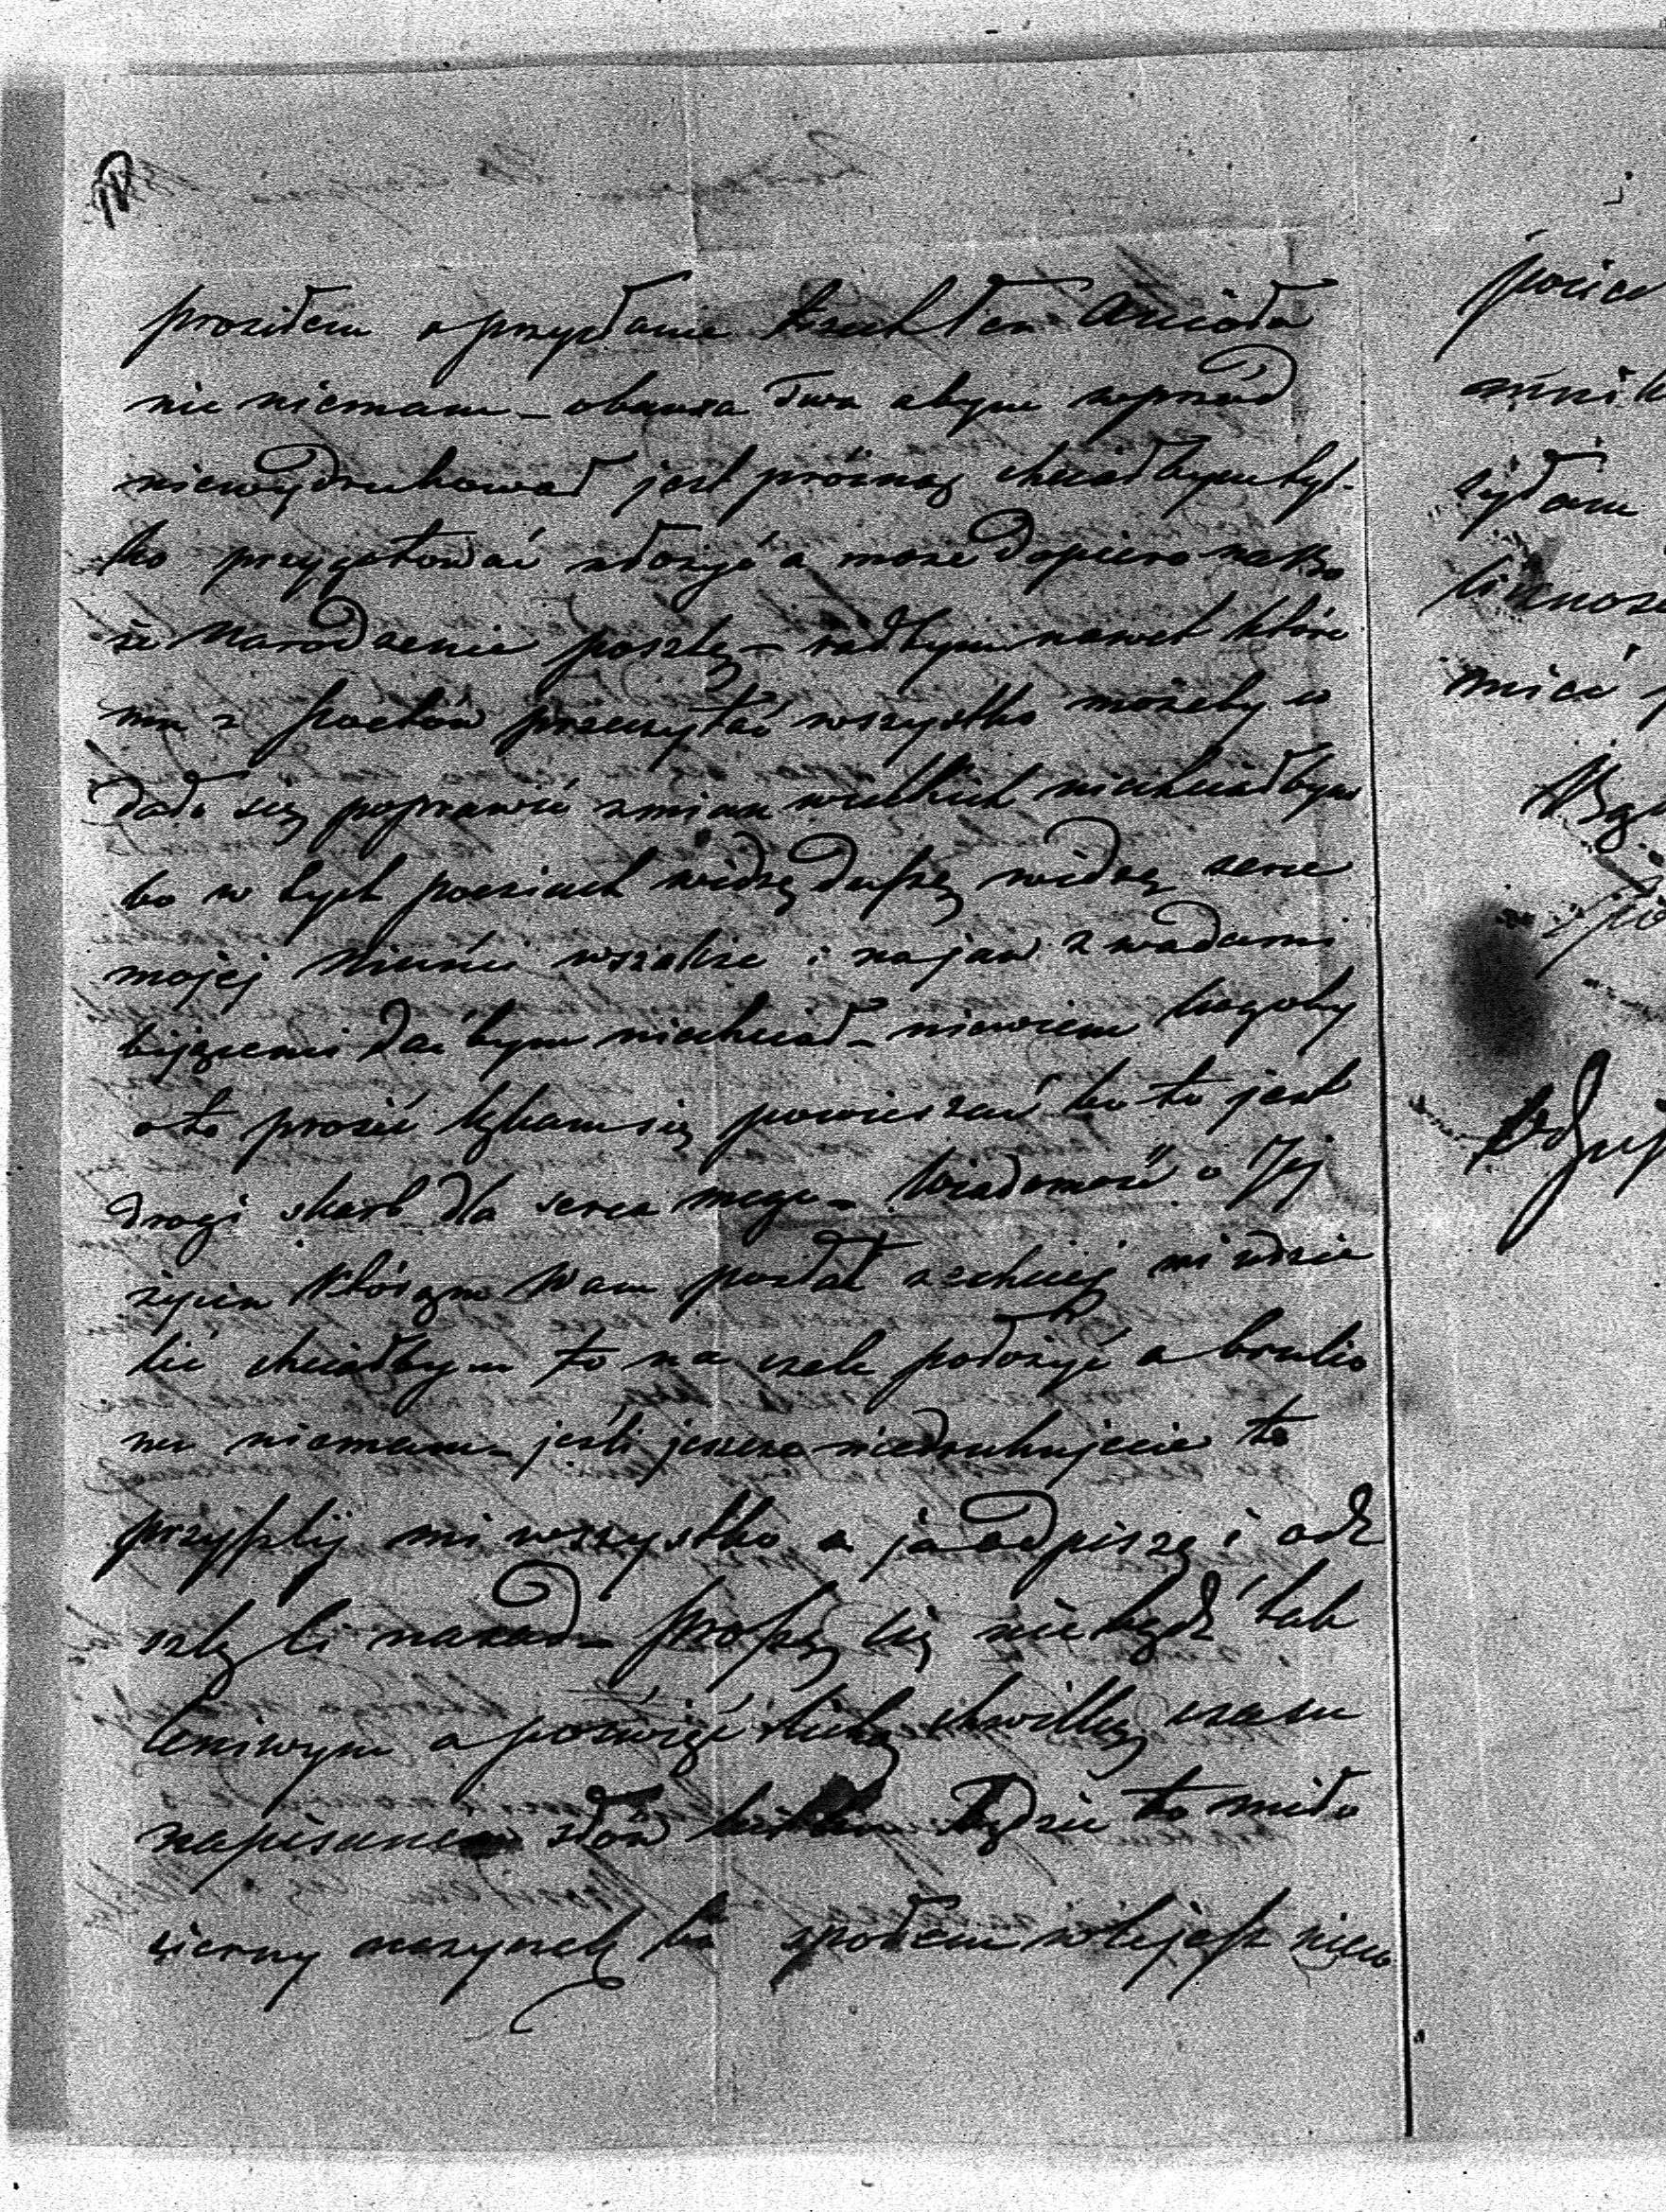 prosiłem o przysłanie trzech Anioła
nic niemam – obawa Twa abym naprzód
niewydrukował jest próżną chciałbym tyl-
ko przygotować złożyć a może dopiero na Bo
że Narodzenie poszlę – radbym nawet które
mu z poetów przeczytać wszystko możeby co
dało się poprawić zmian wielkich niechciałbym
bo w tych poeziach widzę duszę widzę serce
mojej wszakże i na jaw z wadami
bijącemi dać bym niechciał – niewiem kogoby
o to prosić lękam się powierzać bo to jest
drogi skarb dla serca mego – Wiadomość o Jej
życiu którąm Wam posłał zechciej mi udzie
lić chciałbym to na czele położyć a brulio
nu niemam – jeśli jeszcze niedrukujecie to
przyszlij mi wszystko a ja odpiszę i ode
szlę Ci nazad – proszę Cię nie bądź tak
leniwym a poświęć lichą chwilkę czasu
napisane słów będzie to miło
sierny uczynek bo